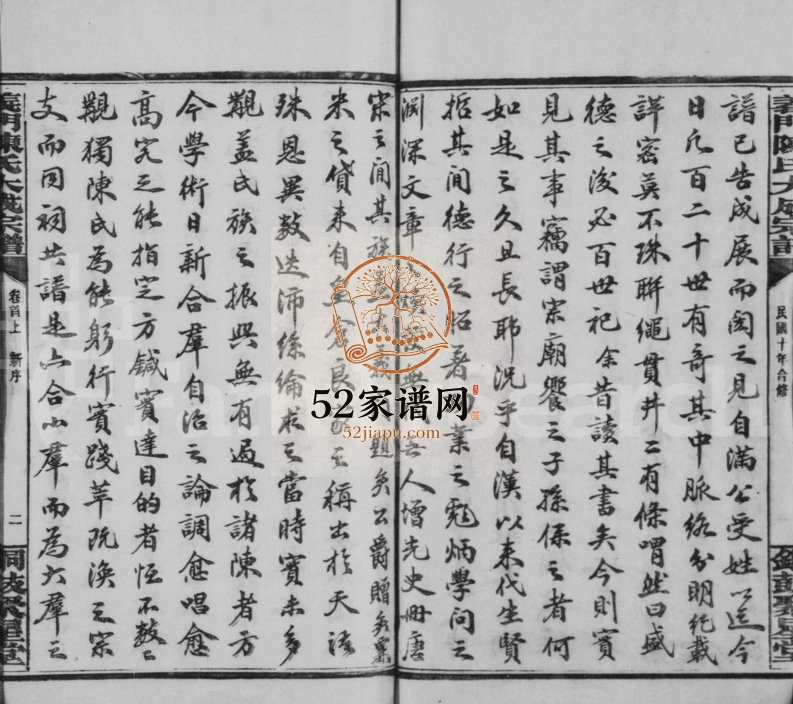 義門陳氏大成宗譜
民國十年合修
譜已告成展而閱之見自滿公受姓以迄今
日凡百二十世有奇其中脈絡分明紀載
詳密莫不珠聯繩貫井二有條喟然曰盛
德之後必百世祀余昔讀其書矣今則實
見其事竊謂宗廟饗之子孫保之者何
如是之久且長耶況乎自漢以來代生賢
哲其間德行之昭著 業之彪炳學問之
淵深文章 人增光史冊唐
宋之間其族 義 題矣公爵贈矣
米之貸來自皇 良 之稱出於天語
殊恩異數迭沛絲綸求之當時實未多
覯蓋氏族之振興無有過於諸陳者方
今學術日新合羣自治之論調愈唱愈
高究之能指定方鍼實達目的者恆不數二
覯獨陳氏為能躬行實踐萃阮渙之宗
支而同祠共譜是亦合小羣而為大羣之
義門陳氏大成宗譜
卷首上 新序
二
聚星堂
52家谱网
52jiapu.com